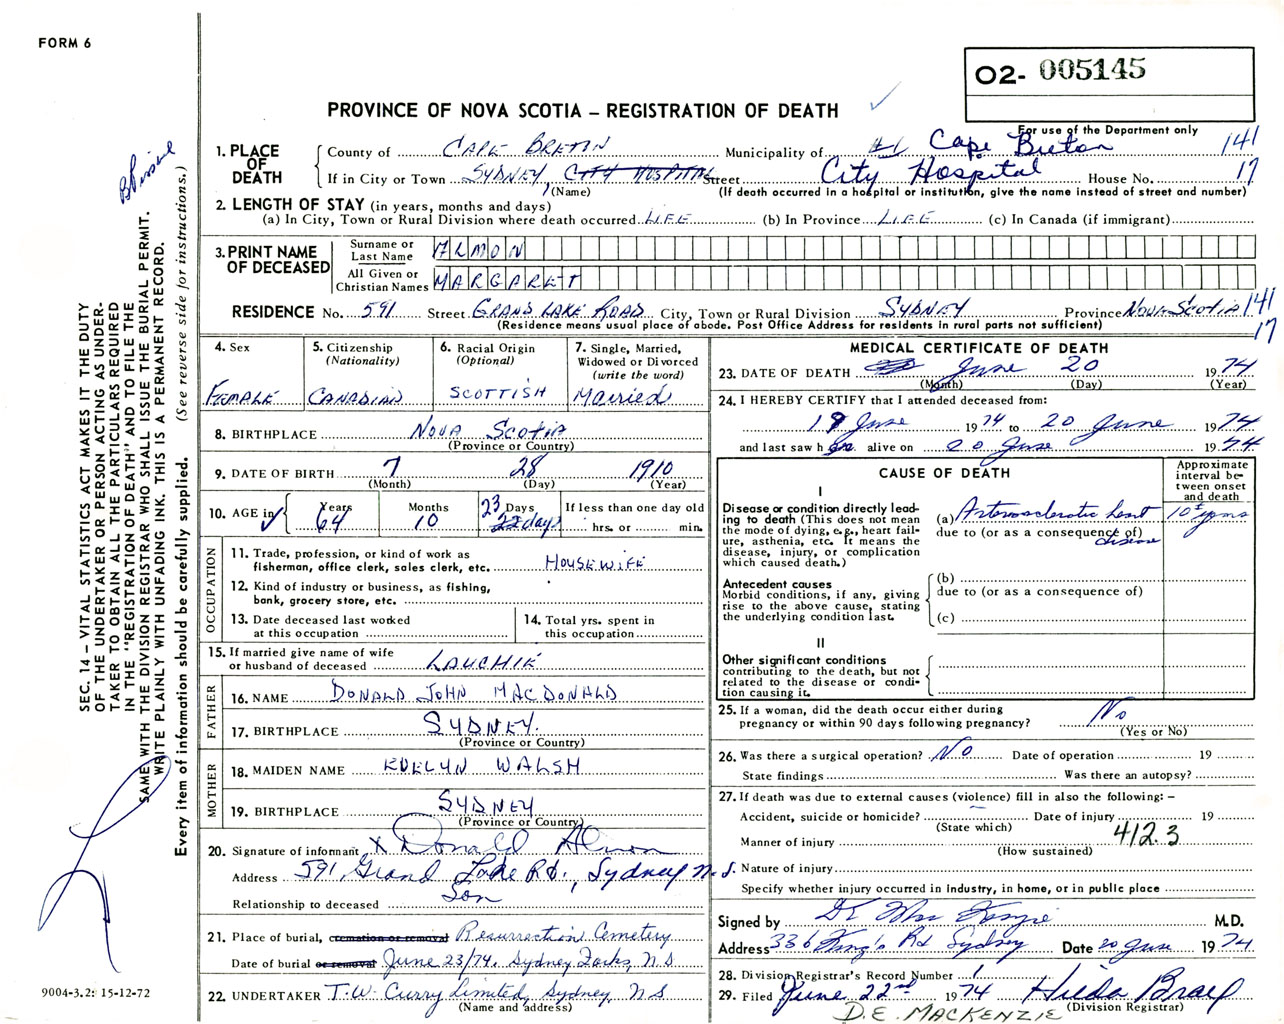 FORM 6
O2- 005145
PROVINCE OF NOVA SCOTIA – REGISTRATION OF DEATH
For use of the Department only
1. PLACE OF DEATH
County of CAPE BRETON Municipality of #1 Cape Breton 141
If in City or Town SYDNEY, CITY HOSPITAL Street City Hospital House No. 17
(Name) (If death occurred in a hospital or institution, give the name instead of street and number)
2. LENGTH OF STAY (in years, months and days)
(a) In City, Town or Rural Division where death occurred LIFE (b) In Province LIFE (c) In Canada (if immigrant)
3. PRINT NAME OF DECEASED
Surname or Last Name ALMON
All Given or Christian Names MARGARET
RESIDENCE No. 591 Street GRAND LAKE ROAD City, Town or Rural Division SYDNEY Province NOVA SCOTIA 141
(Residence means usual place of abode. Post Office Address for residents in rural parts not sufficient) 17
4. Sex FEMALE
5. Citizenship (Nationality) CANADIAN
6. Racial Origin (Optional) SCOTTISH
7. Single, Married, Widowed or Divorced (write the word) Married
8. BIRTHPLACE NOVA SCOTIA
(Province or Country)
9. DATE OF BIRTH 7 28 1910
(Month) (Day) (Year)
10. AGE in Years 64 Months 10 Days 23 22 days If less than one day old hrs. or min.
OCCUPATION
11. Trade, profession, or kind of work as fisherman, office clerk, sales clerk, etc. HOUSEWIFE
12. Kind of industry or business, as fishing, bank, grocery store, etc.
13. Date deceased last worked at this occupation
14. Total yrs. spent in this occupation
15. If married give name of wife or husband of deceased LAUCHIE
FATHER
16. NAME DONALD JOHN MACDONALD
17. BIRTHPLACE SYDNEY.
(Province or Country)
MOTHER
18. MAIDEN NAME EVELYN WALSH
19. BIRTHPLACE SYDNEY
(Province or Country)
20. Signature of informant X Donald Almon
Address 591 Grand Lake Rd., Sydney N.S.
Relationship to deceased Son
21. Place of burial, cremation or removal Resurrection Cemetery
Date of burial or removal June 23/74. Sydney Forks, N S
22. UNDERTAKER T.W. Curry Limited, Sydney, N S
(Name and address)
MEDICAL CERTIFICATE OF DEATH
23. DATE OF DEATH June 20 1974
(Month) (Day) (Year)
24. I HEREBY CERTIFY that I attended deceased from:
19 June 1974 to 20 June 1974
and last saw h er alive on 20 June 1974
CAUSE OF DEATH
Approximate interval between onset and death
I
Disease or condition directly leading to death (This does not mean the mode of dying, e.g., heart failure, asthenia, etc. It means the disease, injury, or complication which caused death.)
(a) Arteriosclerotic heart disease 10±
due to (or as a consequence of)
Antecedent causes
Morbid conditions, if any, giving rise to the above cause, stating the underlying condition last.
(b)
due to (or as a consequence of)
(c)
II
Other significant conditions contributing to the death, but not related to the disease or condition causing it.
25. If a woman, did the death occur either during pregnancy or within 90 days following pregnancy? No
(Yes or No)
26. Was there a surgical operation? No Date of operation 19
State findings Was there an autopsy?
27. If death was due to external causes (violence) fill in also the following: –
Accident, suicide or homicide? Date of injury 19
(State which)
Manner of injury 412.3
(How sustained)
Nature of injury
Specify whether injury occurred in industry, in home, or in public place
Signed by Dr M.D.
Address 336 King's Rd Sydney Date 20 June 1974
28. Division Registrar's Record Number 1
29. Filed June 22nd 1974 Hilda
(Division Registrar)
D.E. MACKENZIE
SEC. 14 – VITAL STATISTICS ACT MAKES IT THE DUTY
OF THE UNDERTAKER OR PERSON ACTING AS UNDER-
TAKER TO OBTAIN ALL THE PARTICULARS REQUIRED
IN THE "REGISTRATION OF DEATH" AND TO FILE THE
SAME WITH THE DIVISION REGISTRAR WHO SHALL ISSUE THE BURIAL PERMIT.
WRITE PLAINLY WITH UNFADING INK. THIS IS A PERMANENT RECORD.
Every item of information should be carefully supplied. (See reverse side for instructions.)
9004-3.2: 15-12-72